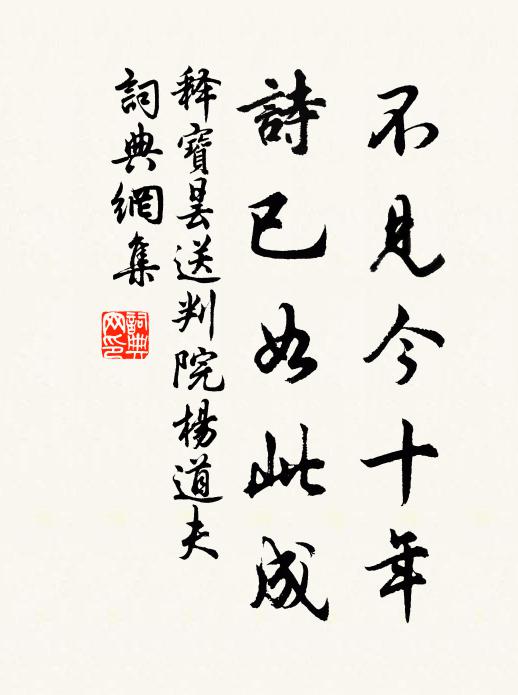 不見今十年
詩已如此成
釋寶曇送判院楊道夫
詞典網集
詞典网印